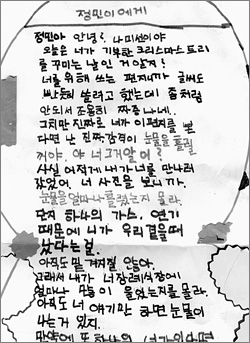 정민이에게
정민아 안녕? 나 미선이야
오늘은 너가 기부한 크리스마스 트리
를 꾸미는 날인 거 알지?
너를 위해 쓰는 편지니까 글씨도
쓸려고 했는데 좀처럼
안되서 조용히 짜증나네.
그치만 진짜로 너가 이 편지를 봤
다면 난 진짜 감격의 눈물을 흘릴
꺼야. 야 너 그거 알어?
사실 어저께 내가 너를 만나러
갔었어. 너 사진을 보니까.
눈물을 얼마나 흘렸는지 몰라.
단지 하나의 가스, 연기
때문에 니가 우리 곁을 떠
났다는 걸.
아직도 믿겨지질 않아.
그래서 내가 너 장례식장에
얼마나 울었는지를 몰라.
아직도 너 얘기만 하면 눈물이
나는 거 있지.
만약에